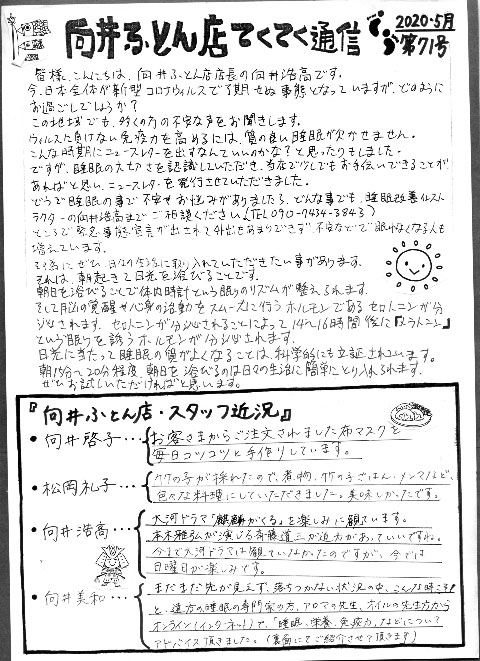 向井ふとん店てくてく通信
2020・5月
第71号
皆様、こんにちは、向井ふとん店店長の向井浩高です。
今、日本全体が新型コロナウィルスで予期せぬ事態となっていますが、どのように
お過ごしでしょうか?
この地域でも、多くの方の不安な声をお聞きします。
ウィルスに負けない免疫力を高めるには、質の良い睡眠が欠かせません。
こんな時期にニュースレターを出すなんていいのかな?と思ったりもしました。
ですが、睡眠の大切さを認識していただき、当店で少しでもお手伝いできることが
あればと思い、ニュースレターを発行させていただきました。
どうぞ睡眠の事で不安やお悩みがありましたら、どんな事でも、睡眠改善インスト
ラクターの向井浩高までご相談ください。(TEL090-7434-3843)
ところで緊急事態宣言が出されて外出もあまりできず、不安などで眠れなくなる人も
増えています。
そこでぜひ、日々の生活に取り入れていただきたい事があります。
それは、朝起きて日光を浴びることです。
朝日を浴びることで体内時計という眠りのリズムが整えられます。
そして月脳の覚醒や心身の活動をスムーズに行うホルモンであるセロトニンが分
泌されます。セロトニンが分泌されることによって14~16時間後に『メラトニン』
という眠りを誘うホルモンが分泌されます。
日光に当たって睡眠の質がよくなることは、科学的にも立証されています。
朝15分~20分程度、朝日を浴びるのは日々の生活に簡単にとり入れられます。
ぜひお試しいただければと思います。
『向井ふとん店・スタッフ近況』
・向井啓子…お客さまからご注文されました布マスクを
毎日コツコツと手作りしています。
・松岡礼子…竹の子が採れたので、煮物、竹の子ごはん、メンマなど、
色々な料理にしていただきました。美味しかったです。
・向井浩高…大河ドラマ「麒麟がくる」を楽しみに観ています。
本木雅弘が演じる斉藤道三が迫力があっていいですね。
今まで大河ドラマは観ていなかったのですが、今では
日曜日が楽しみです。
・向井美和…まだまだ先が見えず、落ちつかない状況の中、こんな時こそ
と、遠方の睡眠の専門家の方、アロマの先生、オイルの先生方から
オンライン(インターネット)で、「睡眠、栄養、免疫力」などについて
アドバイス頂きました。(裏面にてご紹介させて頂きます)